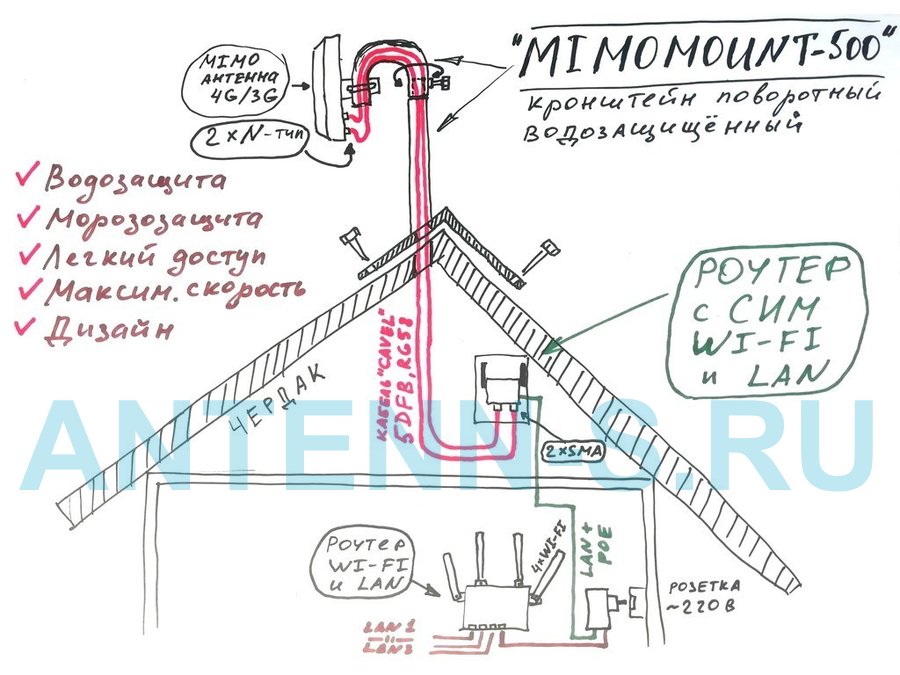 "MIMOMOUNT-500"
кронштейн поворотный
водозащищённый
MIMO
АНТЕННА
4G/3G
2×N-тип
Водозащита
Морозозащита
Легкий доступ
Максим. скорость
Дизайн
РОУТЕР
с СИМ
WI-FI
и LAN
КАБЕЛЬ "CAVEL"
5DFB, RG58
ЧЕРДАК
ANTENN-S.RU
2×SMA
LAN+
POE
4×WI-FI
РОУТЕР
WI-FI
и LAN
РОЗЕТКА
~220В
LAN1
LAN3